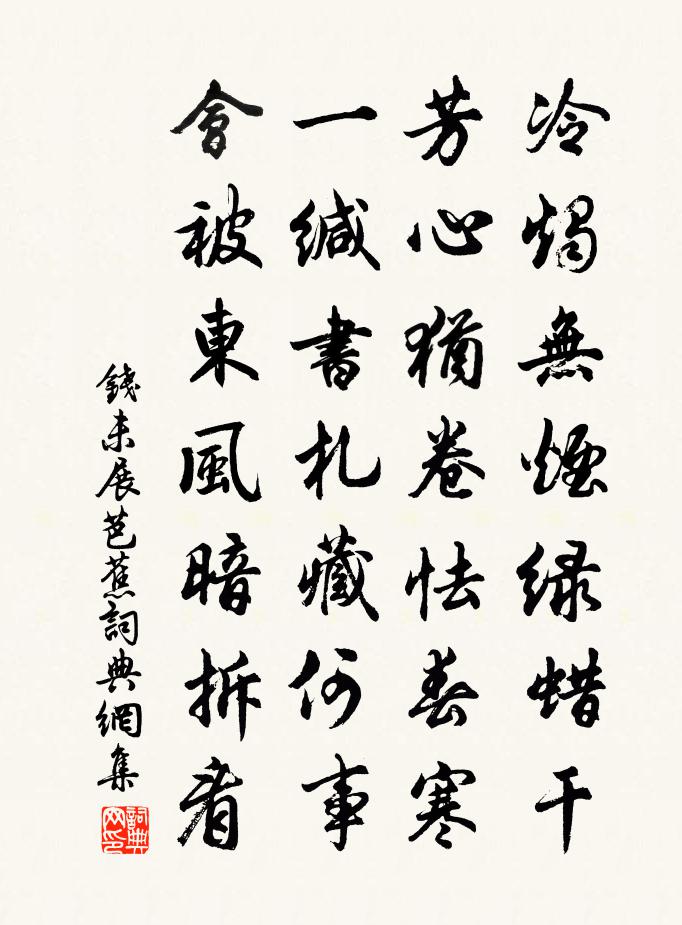 冷燭無煙緑蜡干
芳心猶卷怯春寒
一缄書札藏何事
會被東風暗拆看
錢未展芭蕉詞典網集
詞典网印